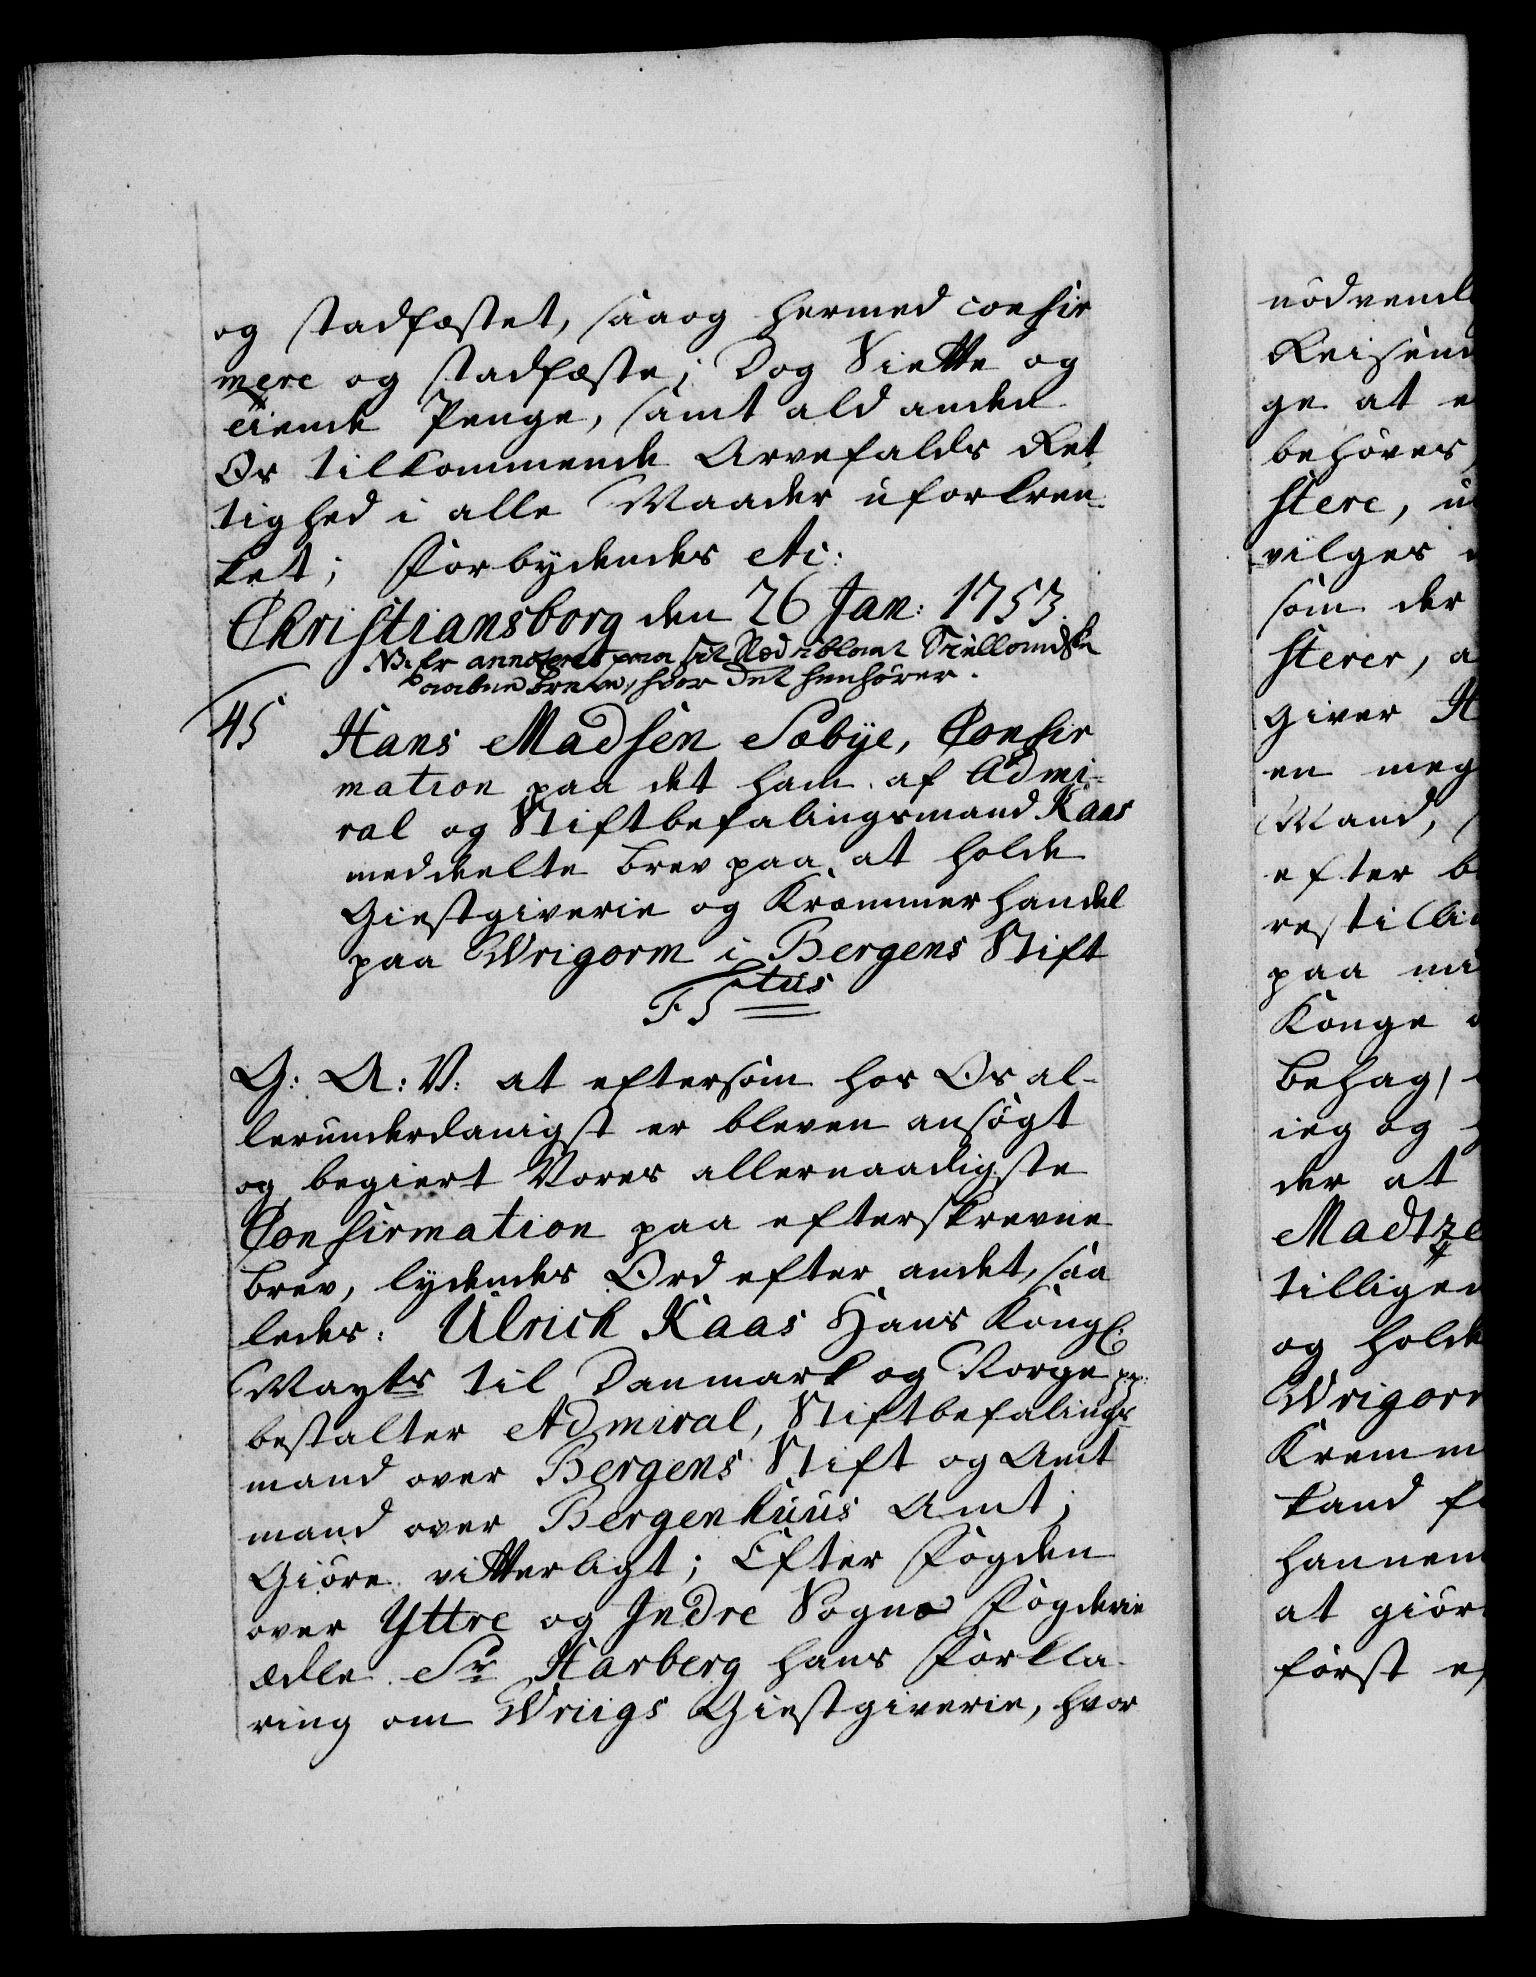 og stadfæstet, saa og hermed confir
mere og stadfæste; Dog Siette og
tiende Penge, samt ald anden
Os tilkommende Arvefalds Ret
tighed i alle Maader uforkren-
ket; Forbydendes etc:
Christiansborg den 26 Jan: 1753.
NB. Er annoteret paa sit Stæd iblant Siellandske
aabne Breve, hvor det henhörer.
45
Hans Madsen Sæbye, Confir
mation paa det ham af Admi-
ral og Stiftbefalingsmand Kaas
meddeelte Brev paa at holde
Giestgiverie og Kræmmerhandel
paa Wrigorm i Bergens Stift
F 5tus
G: A: V: at eftersom hos Os al-
lerunderdanigst er bleven ansögt
og begiert Vores allernaadigste
Confirmation paa efterskrevne
Brev, lydendes Ord efter andet, saa
ledes: Ulrich Kaas Hans Kongl:
Mayts til Danmark og Norge pp:
bestalter Admiral, Stiftbefalings
mand over Bergens Stift og Amt
mand over Bergenhuus Amt;
Giöre vitterligt; Efter Fogden
over Yttre og Indre Sogns Fogderie
ædle Sr Harberg hans Forkla-
ring om Wriigs Giestgiverie, hvor
nödvend
Reisend
ge at e
behöves,
stere, u
vilges
som der
sterer, a
giver H
en meg
Mand,
efter b
restilli
paa mi
Konge
Behag,
ieg og
der at
Madtze
tilligem
og holde
Wrigorm
Kremm
kand f
hannem
at giör
först ef